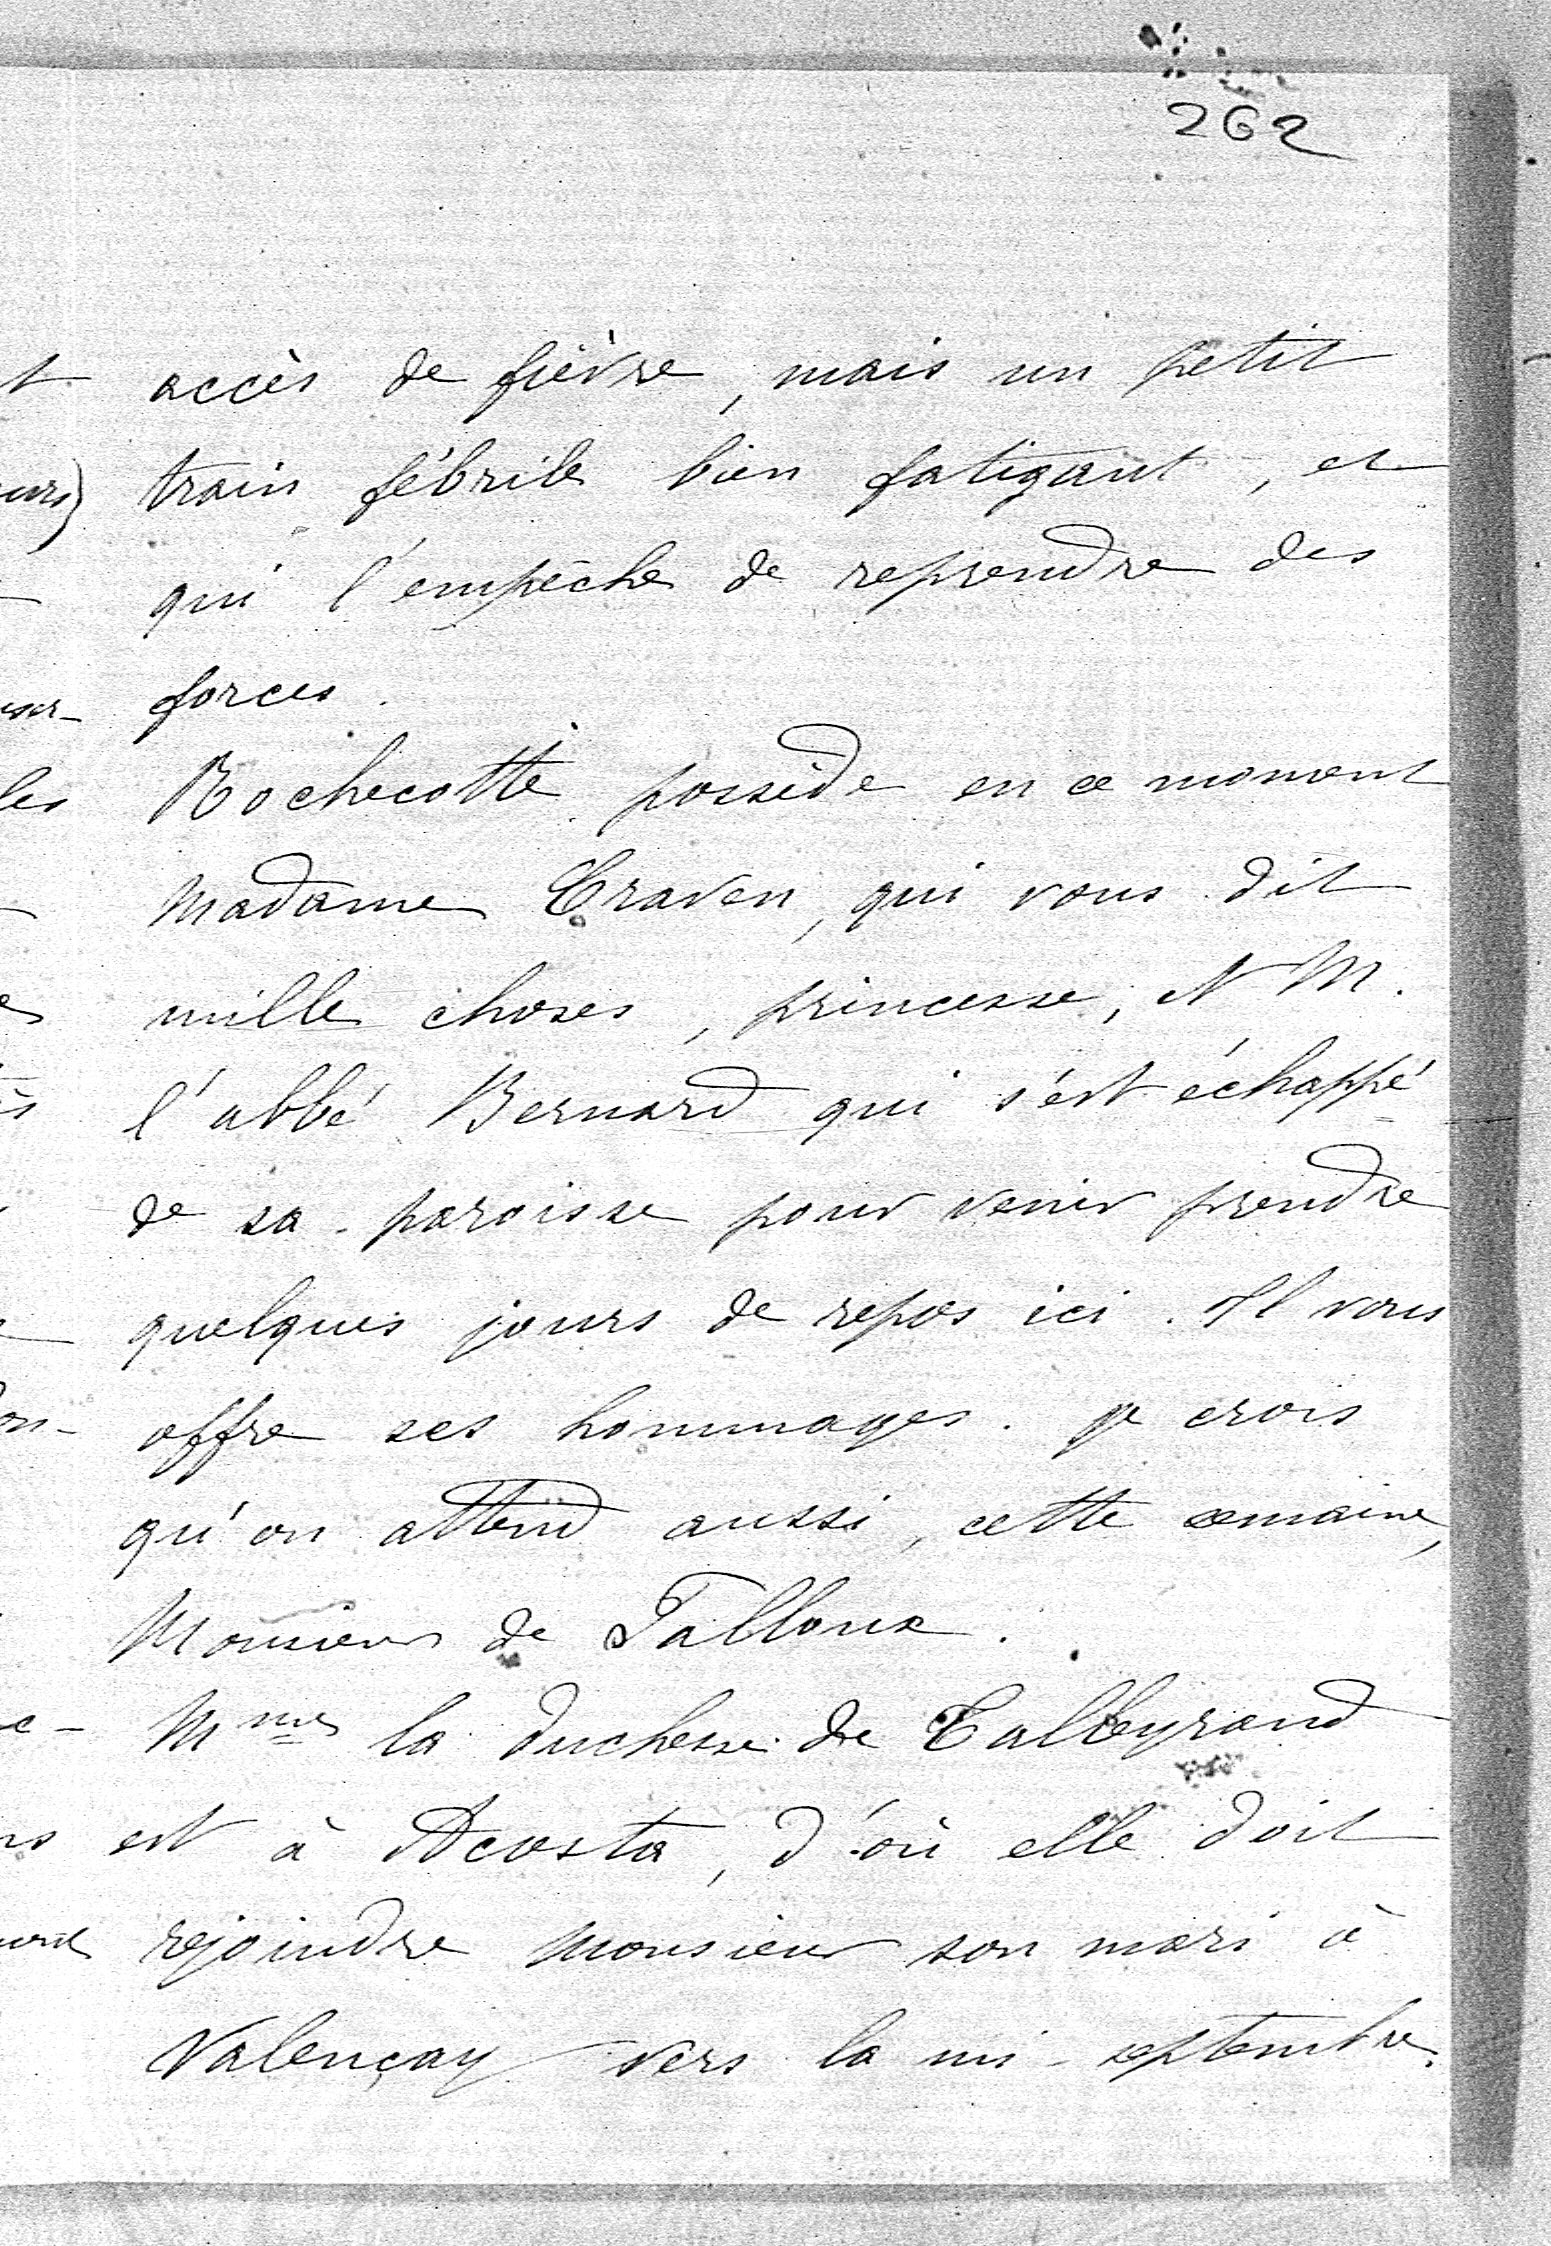 262
accès de fièvre, mais un petit
train fébrile bien fatigant, et
qui l'empêche de reprendre des
forces.
Rochecotte possède en ce moment
Madame Craven, qui vous dit
mille choses, princesse, et M.
l'abbé Bernard qui s'est échappé
de sa paroisse pour venir prendre
quelques jours de repos ici. Il vous
offre ses hommages. Je crois
qu'on attend aussi, cette semaine,
Monsieur de Falloux.
Mme la duchesse de Talleyrand
est à Acosta, d'où elle doit
rejoindre Monsieur son mari à
Valençay vers la mi-septembre.